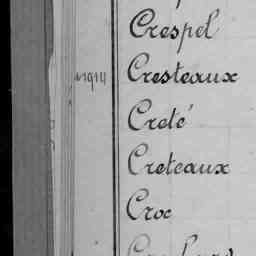 Crespel
1914 Cresteaux
Creté
Creteaux
Croc